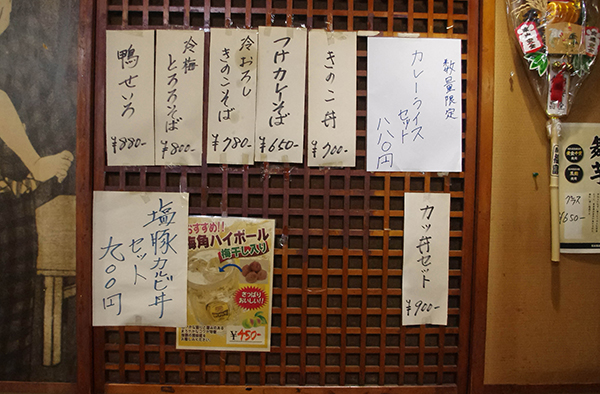 数量限定
カレーライス
セット
八八〇円
きのこ丼
¥700-
つけカレーそば
¥650-
冷おろし
きのこそば
¥780-
冷梅
とろろそば
¥800-
鴨せいろ
¥880-
カツ丼セット
¥900-
おすすめ!!
梅角ハイボール
梅干し入り
さっぱり
おいしい!!
¥450-
塩豚カルビ丼
セット
九〇〇円
グラス
¥650-